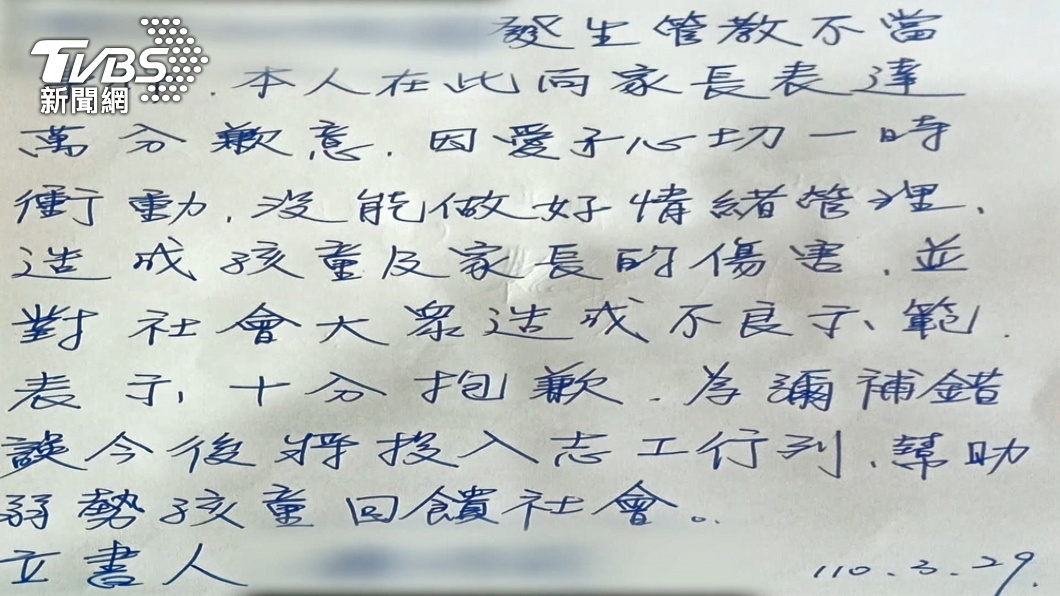 TVBS
新聞網
發生管教不當
.本人在此向家長表達
萬分歉意.因愛子心切一時
衝動.沒能做好情緒管理.
造成孩童及家長的傷害.並
對社會大眾造成不良示範.
表示十分抱歉.為彌補錯
誤今後將投入志工行列.幫助
弱勢孩童回饋社會。
立書人
110.3.29.